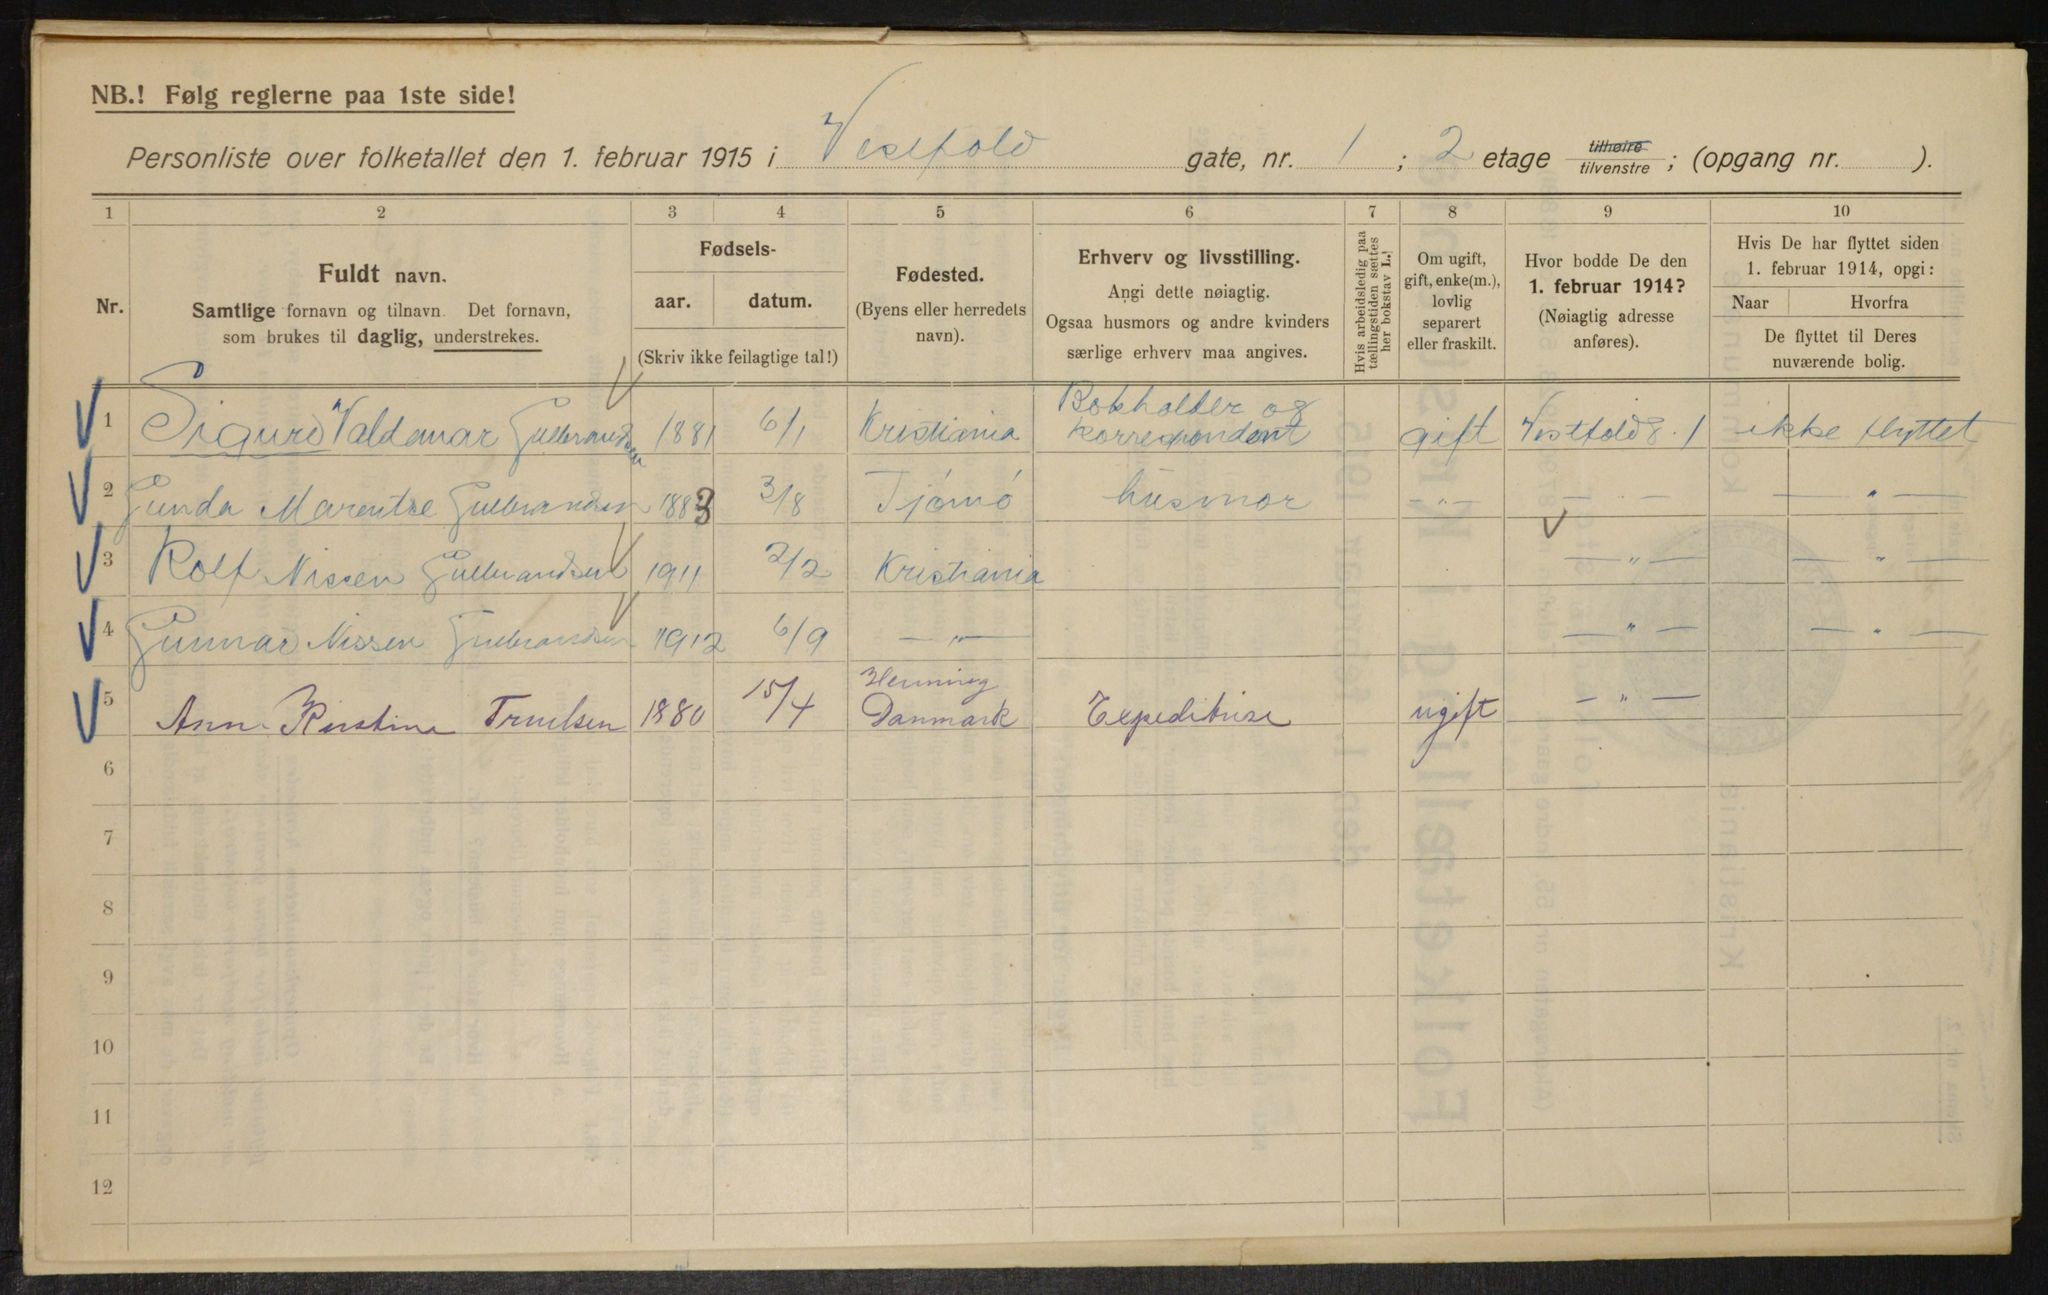 NB.! Følg reglerne paa 1ste side!
Personliste over folketallet den 1. februar 1915 i Vestfold gate, nr. 1 ; 2 etage tilhøire tilvenstre ; (opgang nr. ).
1 2 3 4 5 6 7 8 9 10
Nr.
Fuldt navn.
Samtlige fornavn og tilnavn. Det fornavn,
som brukes til daglig, understrekes.
Fødsels-
aar. datum.
(Skriv ikke feilagtige tal!)
Fødested.
(Byens eller herredets
navn).
Erhverv og livsstilling.
Angi dette nøiagtig.
Ogsaa husmors og andre kvinders
særlige erhverv maa angives.
Hvis arbeidsledig paa
tællingstiden sættes
her bokstav L.!
Om ugift,
gift, enke(m.),
lovlig
separert
eller fraskilt.
Hvor bodde De den
1. februar 1914?
(Nøiagtig adresse
anføres).
Hvis De har flyttet siden
1. februar 1914, opgi:
Naar Hvorfra
De flyttet til Deres
nuværende bolig.
1 Sigurd Valdemar Gulbrandsen 1881 6/1 Kristiania Bokholder og korrespondent gift Vestfold g. 1 ikke flyttet
2 Gunda Marentse Gulbrandsen 1883 3/8 Tjømö husmor — " — — " — — " —
3 Rolf Nissen Gulbrandsen 1911 2/2 Kristiania — " — — " —
4 Gunnar Nissen Gulbrandsen 1912 6/9 — " — — " — — " —
5 Ann Kirstine Truelsen 1880 15/4 Henning Danmark Expeditrise ugift — " —
6
7
8
9
10
11
12